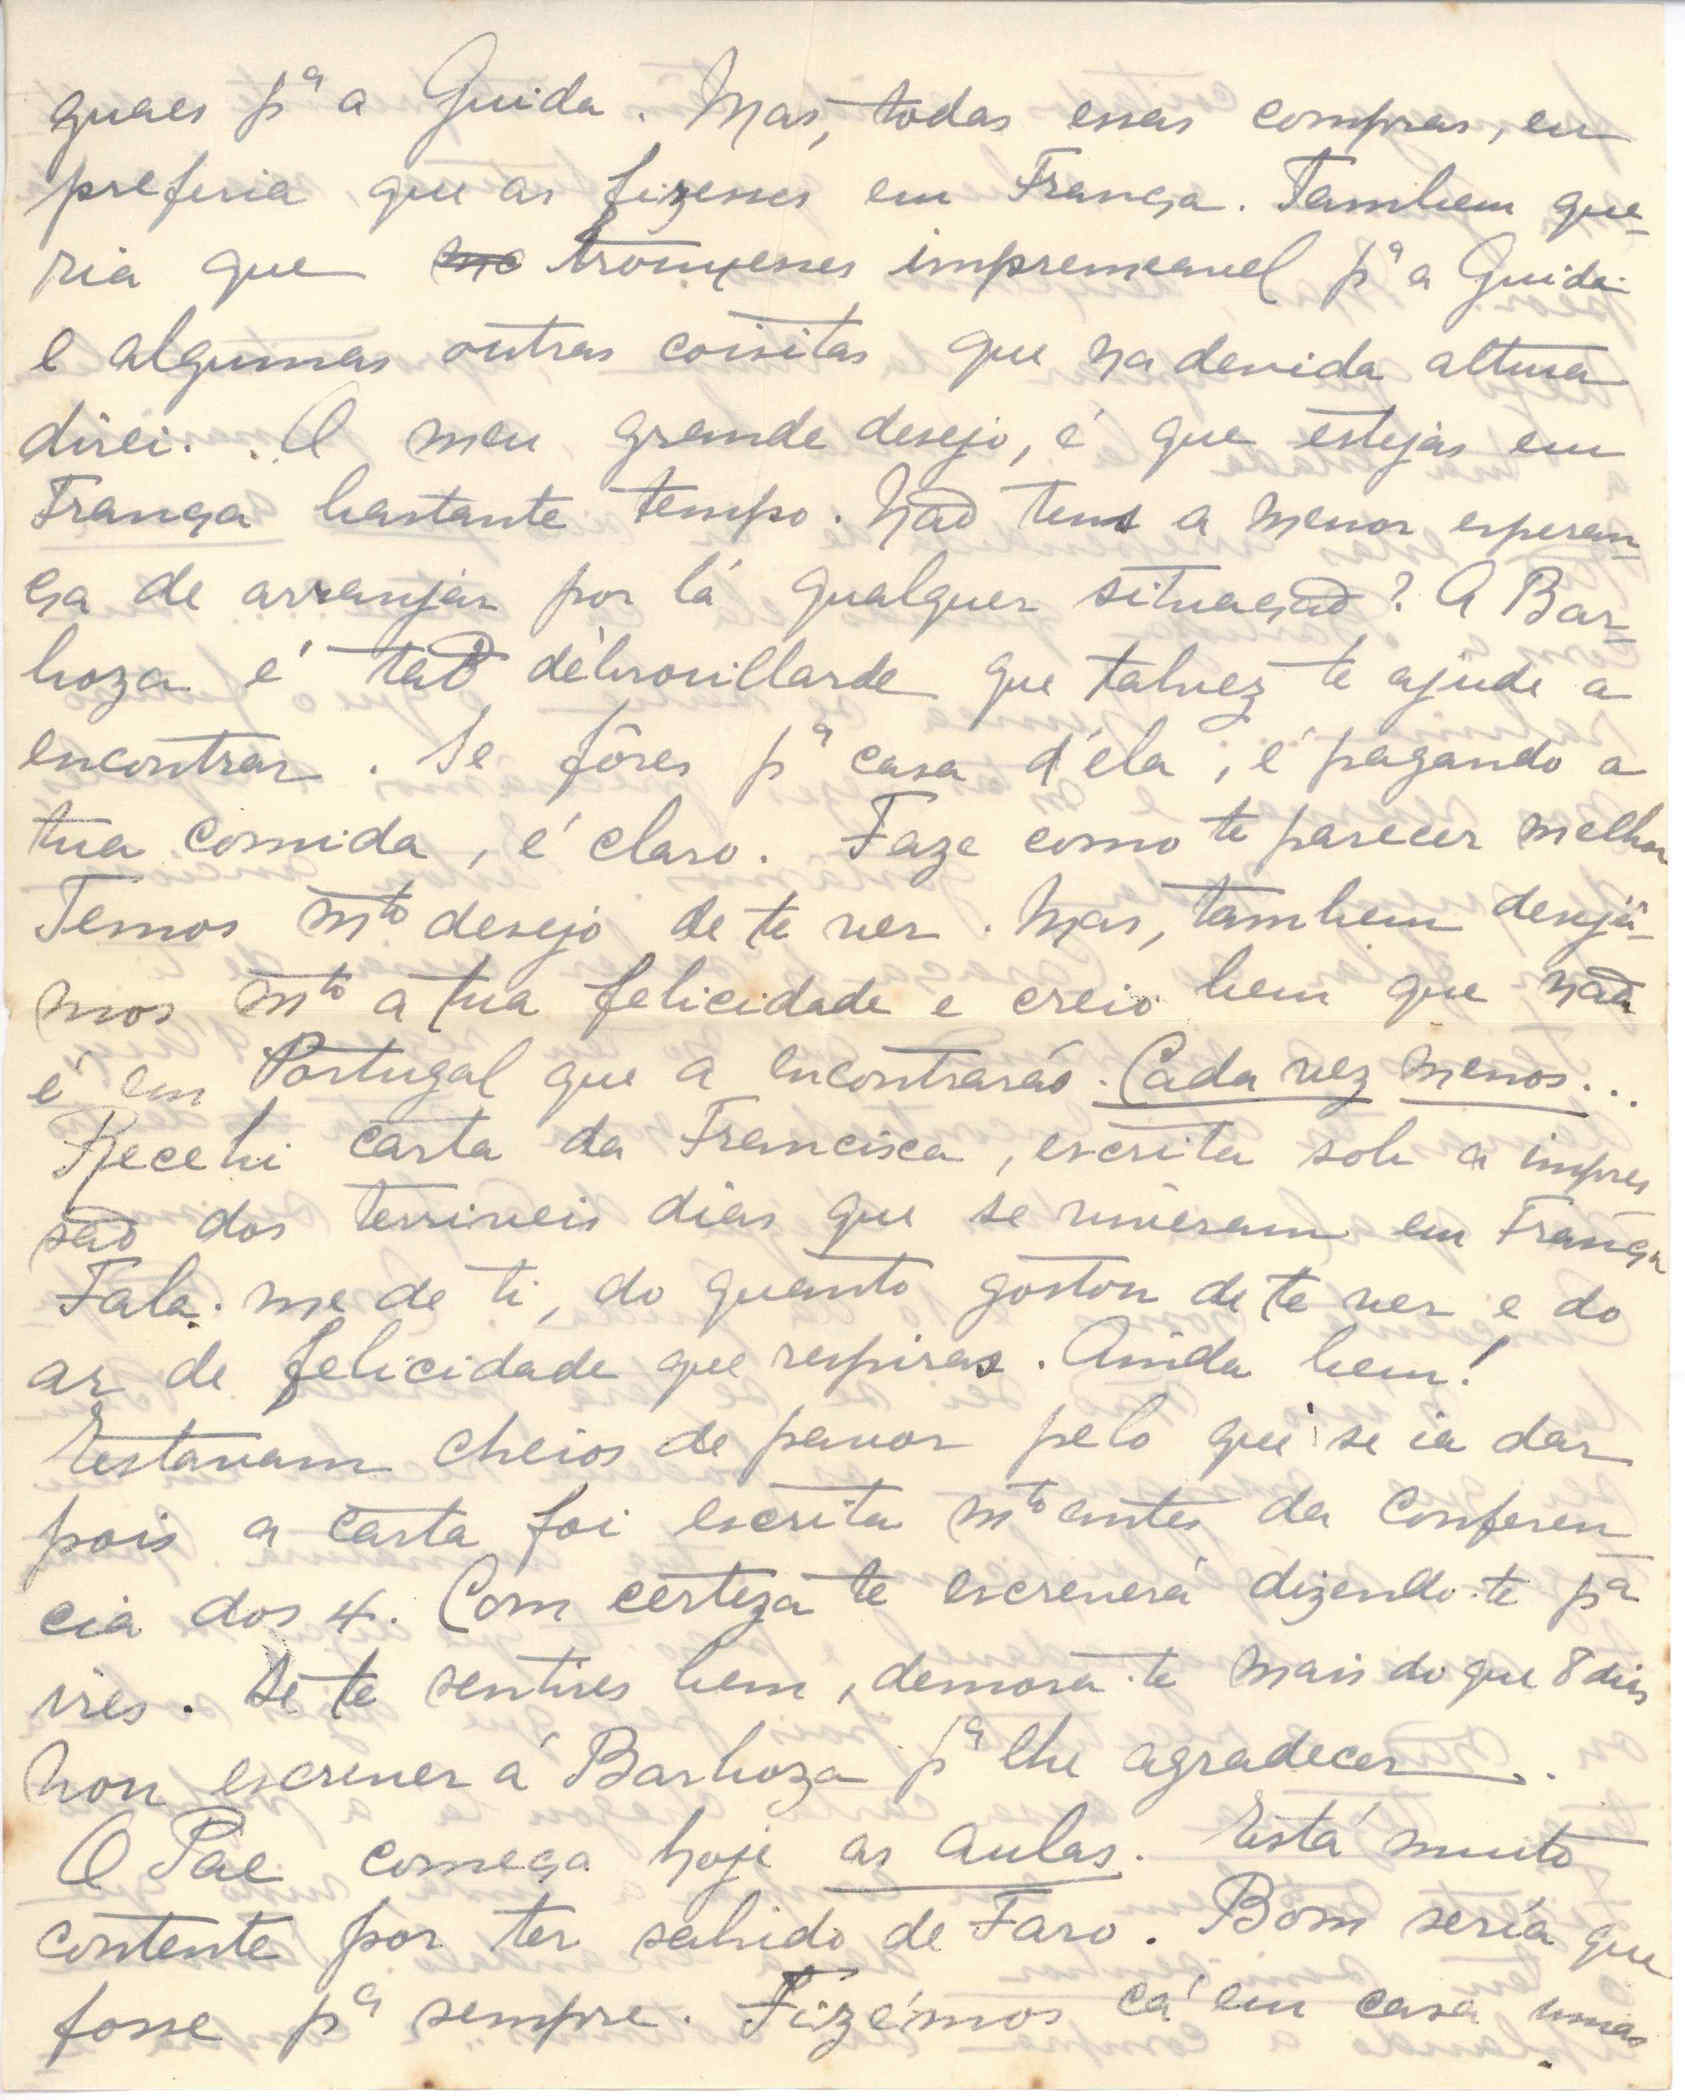 guaes pª a Guida. Mas, todas essas compras, eu
preferia que as fizesses em França. Tambem que-
ria que me trouxesses impremeavel pª a Guida
e algumas outras coisitas que na devida altura
direi. O meu grande desejo, é que estejas em
França bastante tempo. Não tens a menor esperan-
ça de arranjar por lá qualquer situação? A Bar-
boza é tão débrouillarde que talvez te ajude a
encontrar. Se fôres pª casa d'éla, é pagando a
tua comida, é claro. Faze como te parecer melhor
Temos mto desejo de te ver. Mas, tambem desejâ-
mos mto a tua felicidade e creio bem que não
é em Portugal que a encontrarás. Cada vez menos...
Recebi carta da Francisca, escrita sob a impres
são dos terriveis dias que se viveram em França
Fala-me de ti, do quanto gostou de te ver e do
ar de felicidade que respiras. Ainda bem!
Estavam cheios de pavor pelo que se ia dar
pois a carta foi escrita mto antes da Conferen
cia dos 4. Com certeza te escreverá dizendo-te pª
ires. Se te sentires bem, demora-te mais do que 8 dias
Vou escrever á Barboza pª lhe agradecer.
O Pae começa hoje as aulas. Está muito
contente por ter sahido de Faro. Bom sería que
fosse pª sempre. Fizémos cá em casa umas